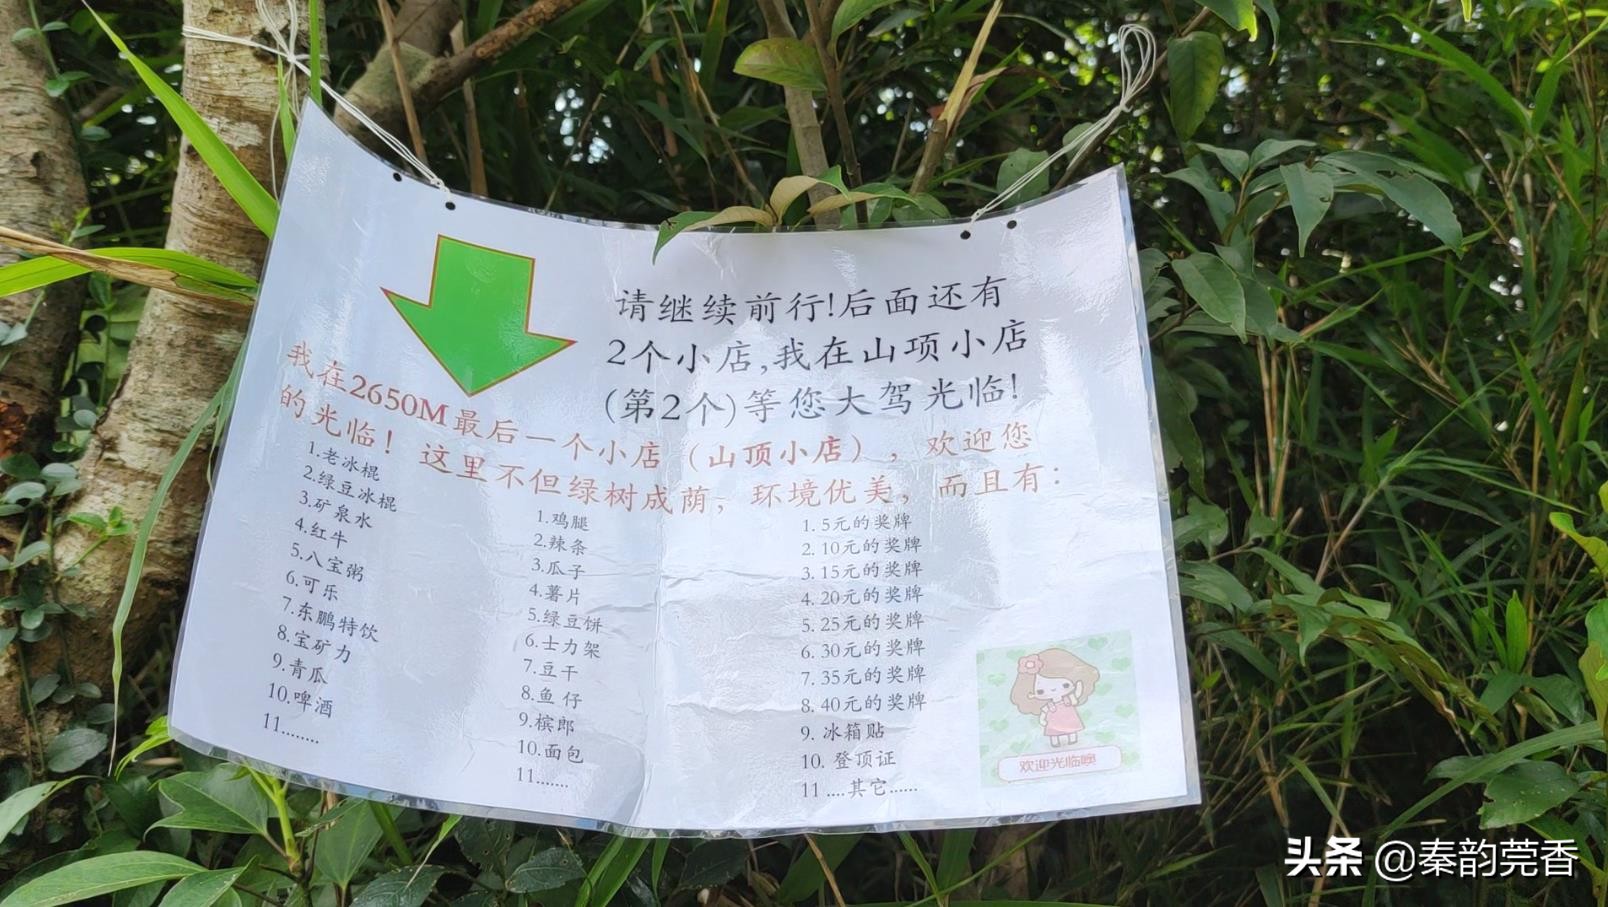 请继续前行!后面还有
2个小店,我在山项小店
(第2个)等您大驾光临!
我在2650M最后一个小店（山顶小店），欢迎您
的光临！这里不但绿树成荫，环境优美，而且有：
1.老冰棍
2.绿豆冰棍
3.矿泉水
4.红牛
5.八宝粥
6.可乐
7.东鹏特饮
8.宝矿力
9.青瓜
10.啤酒
11........
1.鸡腿
2.辣条
3.瓜子
4.薯片
5.绿豆饼
6.士力架
7.豆干
8.鱼仔
9.槟郎
10.面包
11.......
1. 5元的奖牌
2. 10元的奖牌
3. 15元的奖牌
4. 20元的奖牌
5. 25元的奖牌
6. 30元的奖牌
7. 35元的奖牌
8. 40元的奖牌
9. 冰箱贴
10. 登顶证
11 ....其它......
欢迎光临噢
头条 @秦韵莞香